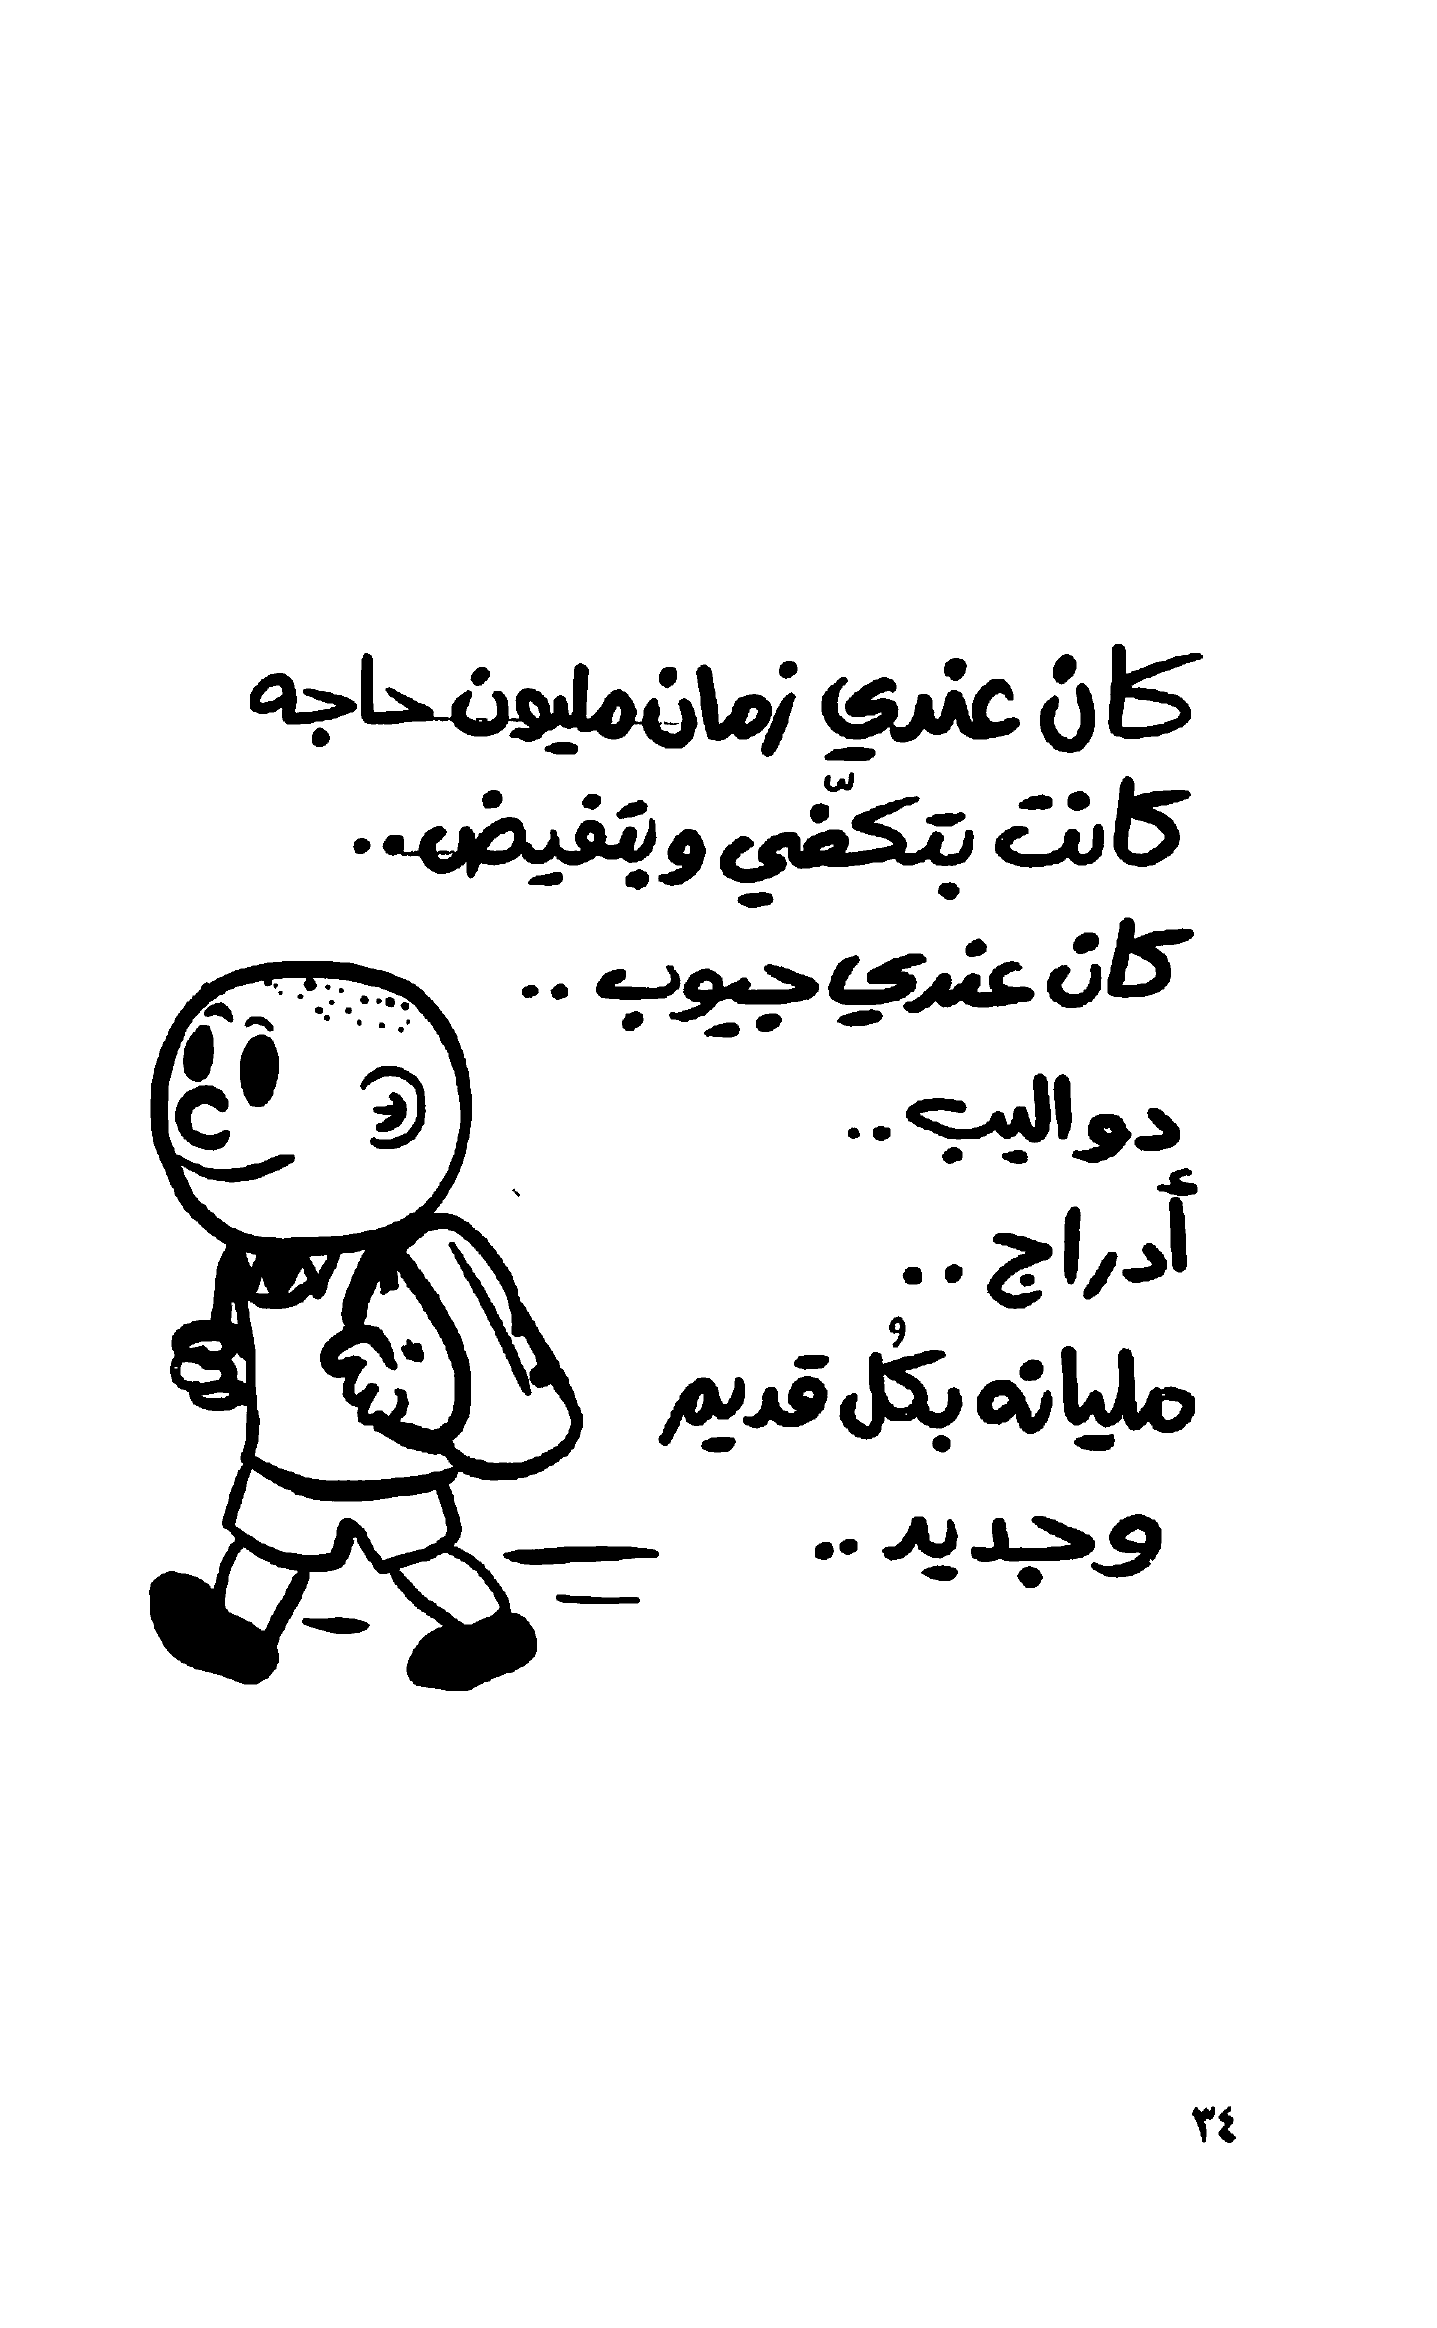 كان عندي زمان مليون حاجه
كانت بتكفّي وبتفيض..
كان عندي جيوب ..
دواليب ..
أدراج ..
مليانه بكُل قديم
وجديد ..
٣٤